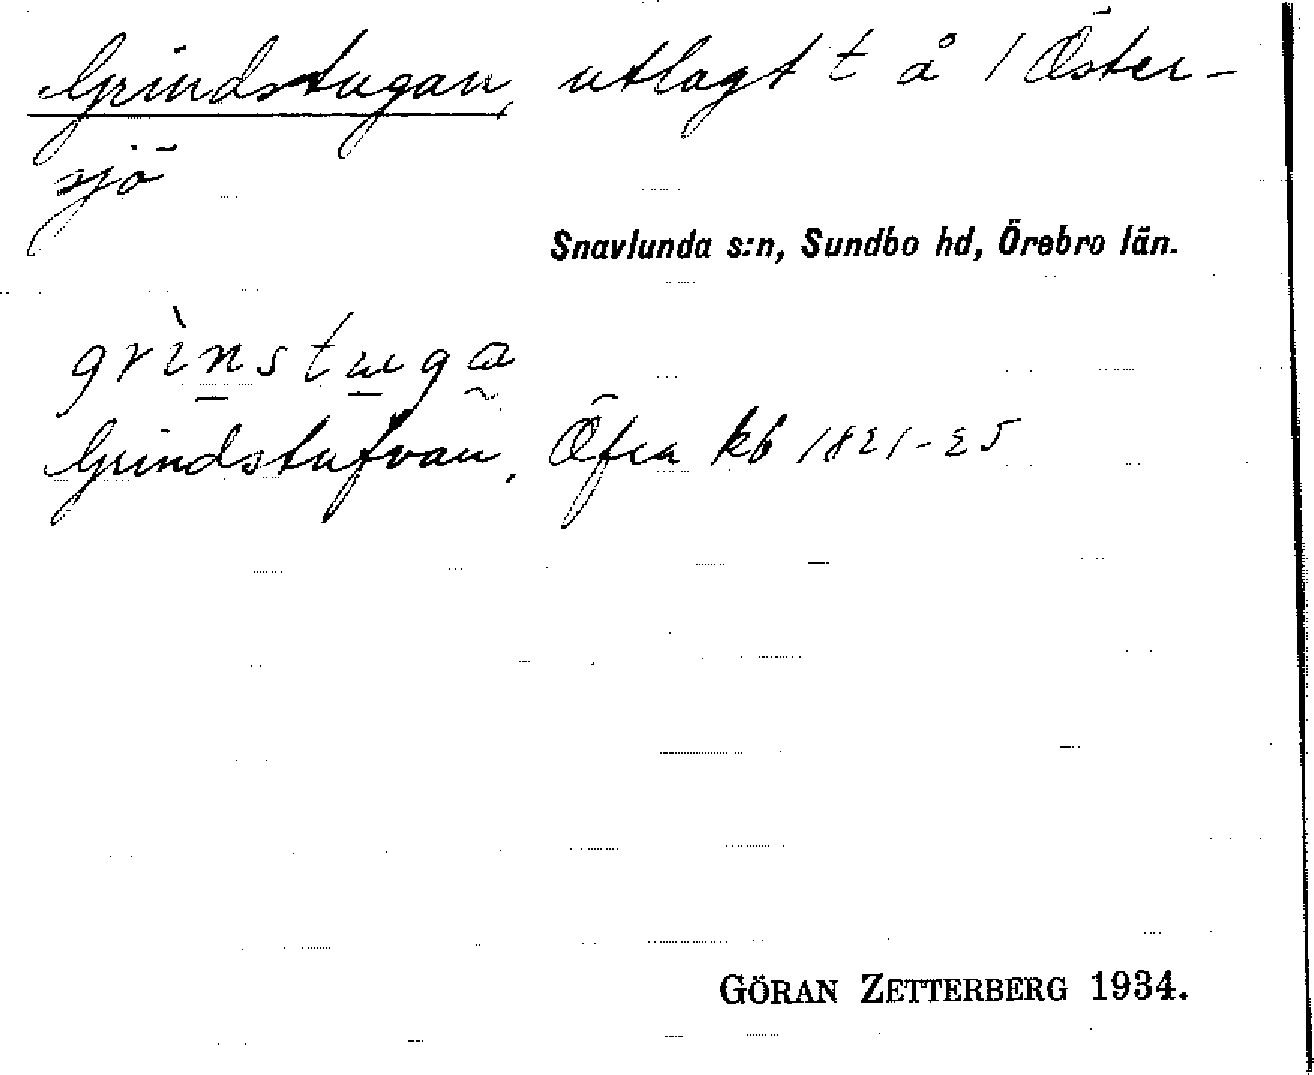 Grindstugan, utlagt t å 1 Öster-
sjö
Snavlunda s:n, Sundbo hd, Örebro län.
grìnstuga
Grindstufvan, Öfra kb 1821-25
GÖRAN ZETTERBERG 1934.